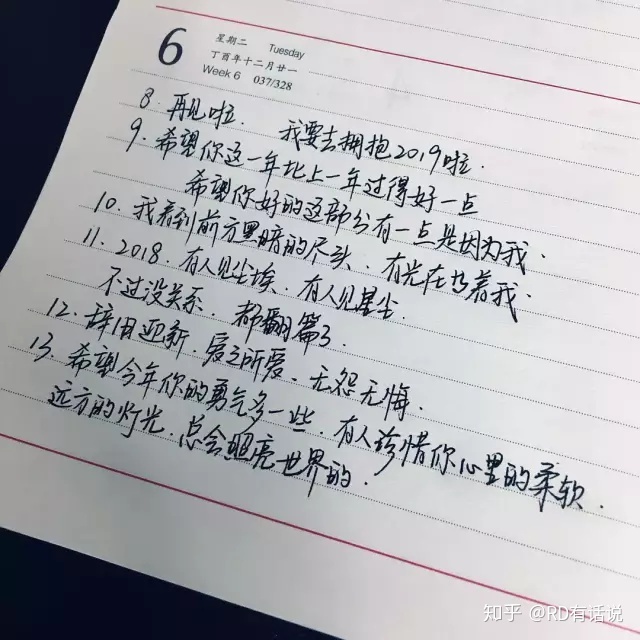 6
星期二 Tuesday
丁酉年十二月廿一
Week 6 037/328
8. 再见啦. 我要去拥抱2019啦.
9. 希望你这一年比上一年过得好一点
希望你好的这部分有一点是因为我.
10. 我看到前方黑暗的尽头、有光在等着我.
11. 2018. 有人见尘埃、有人见星尘
不过没关系. 都翻篇了.
12. 辞旧迎新 爱之所爱、无怨无悔.
13. 希望今年你的勇气多一些. 有人珍惜你心里的柔软.
远方的灯光. 总会照亮世界的.
知乎 @RD有话说